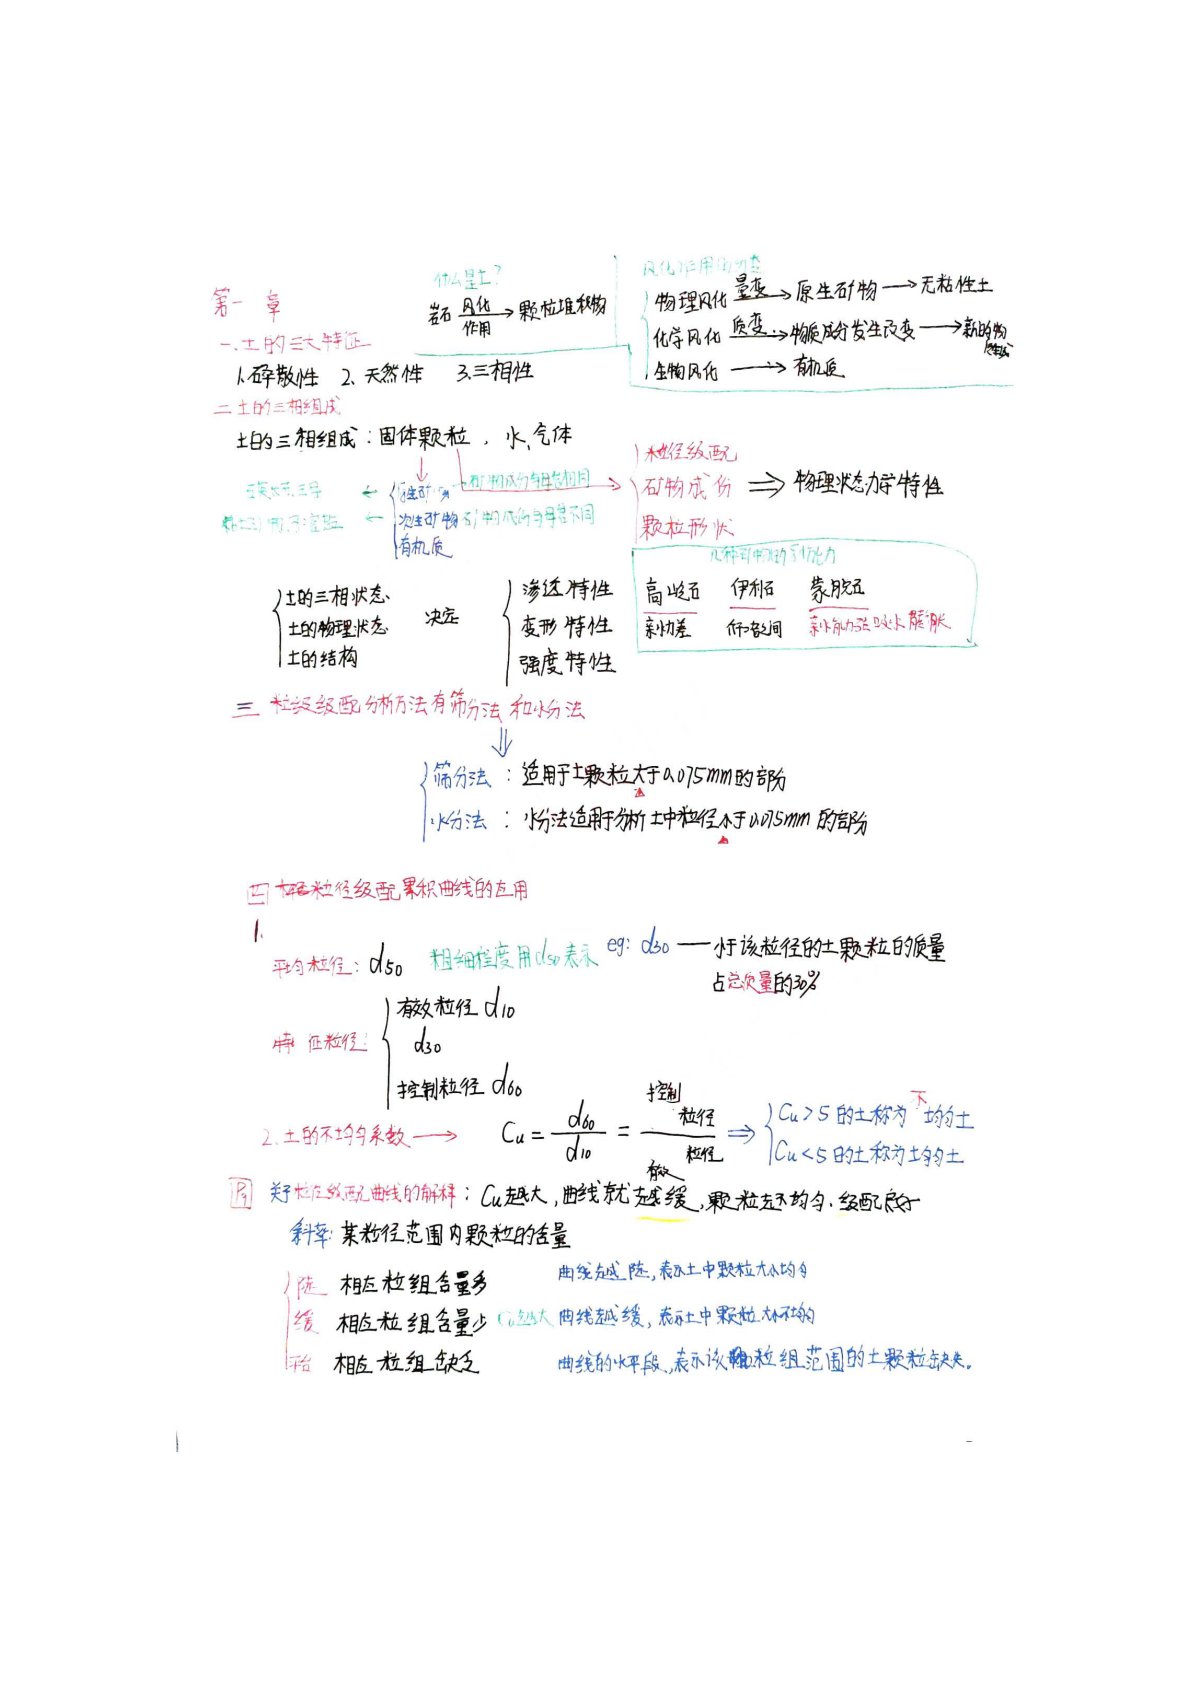 第一章
什么是土?
岩石 风化作用 → 颗粒堆积物
风化作用的
物理风化 量变 → 原生矿物 → 无粘性土
化学风化 质变 → 物质成分发生改变 → 新的物
生物风化 → 有机质
一.土的三大特征
1.碎散性 2.天然性 3.三相性
二 土的三相组成
土的三相组成:固体颗粒,水、气体
原生矿物 矿物成份与母岩相同
次生矿物 矿物成份与母岩不同
有机质
粒径级配
矿物成份 ⇒ 物理状态力学特性
颗粒形状
高岭石 伊利石 蒙脱石
亲水力差 介于者之间 亲水能力强 吸水膨胀
土的三相状态
土的物理状态
土的结构
决定
渗透特性
变形特性
强度特性
三 粒级级配分析方法有筛分法和水分法
筛分法:适用于土颗粒大于0.075mm的部分
水分法:水分法适用于分析土中粒径小于0.075mm的部分
四 粒径级配累积曲线的应用
1.
平均粒径:d50 粗细程度用d50表示 eg: d30 — 小于该粒径的土颗粒的质量
占总质量的30%
特征粒径:
有效粒径 d10
d30
控制粒径 d60
2.土的不均匀系数 → Cu = d60/d10 = 控制粒径/有效粒径 ⇒
Cu>5的土称为不均匀土
Cu<5的土称为均匀土
关于粒径级配曲线的解释:Cu越大,曲线就越缓,颗粒越不均匀.级配良好
斜率:某粒径范围内颗粒的含量
陡 相应粒组含量多 曲线越陡,表示土中颗粒大小均匀
缓 相应粒组含量少 Cu越大 曲线越缓,表示土中颗粒大小不均匀
平台 相应粒组缺乏 曲线的水平段,表示该粒组范围的土颗粒缺失。